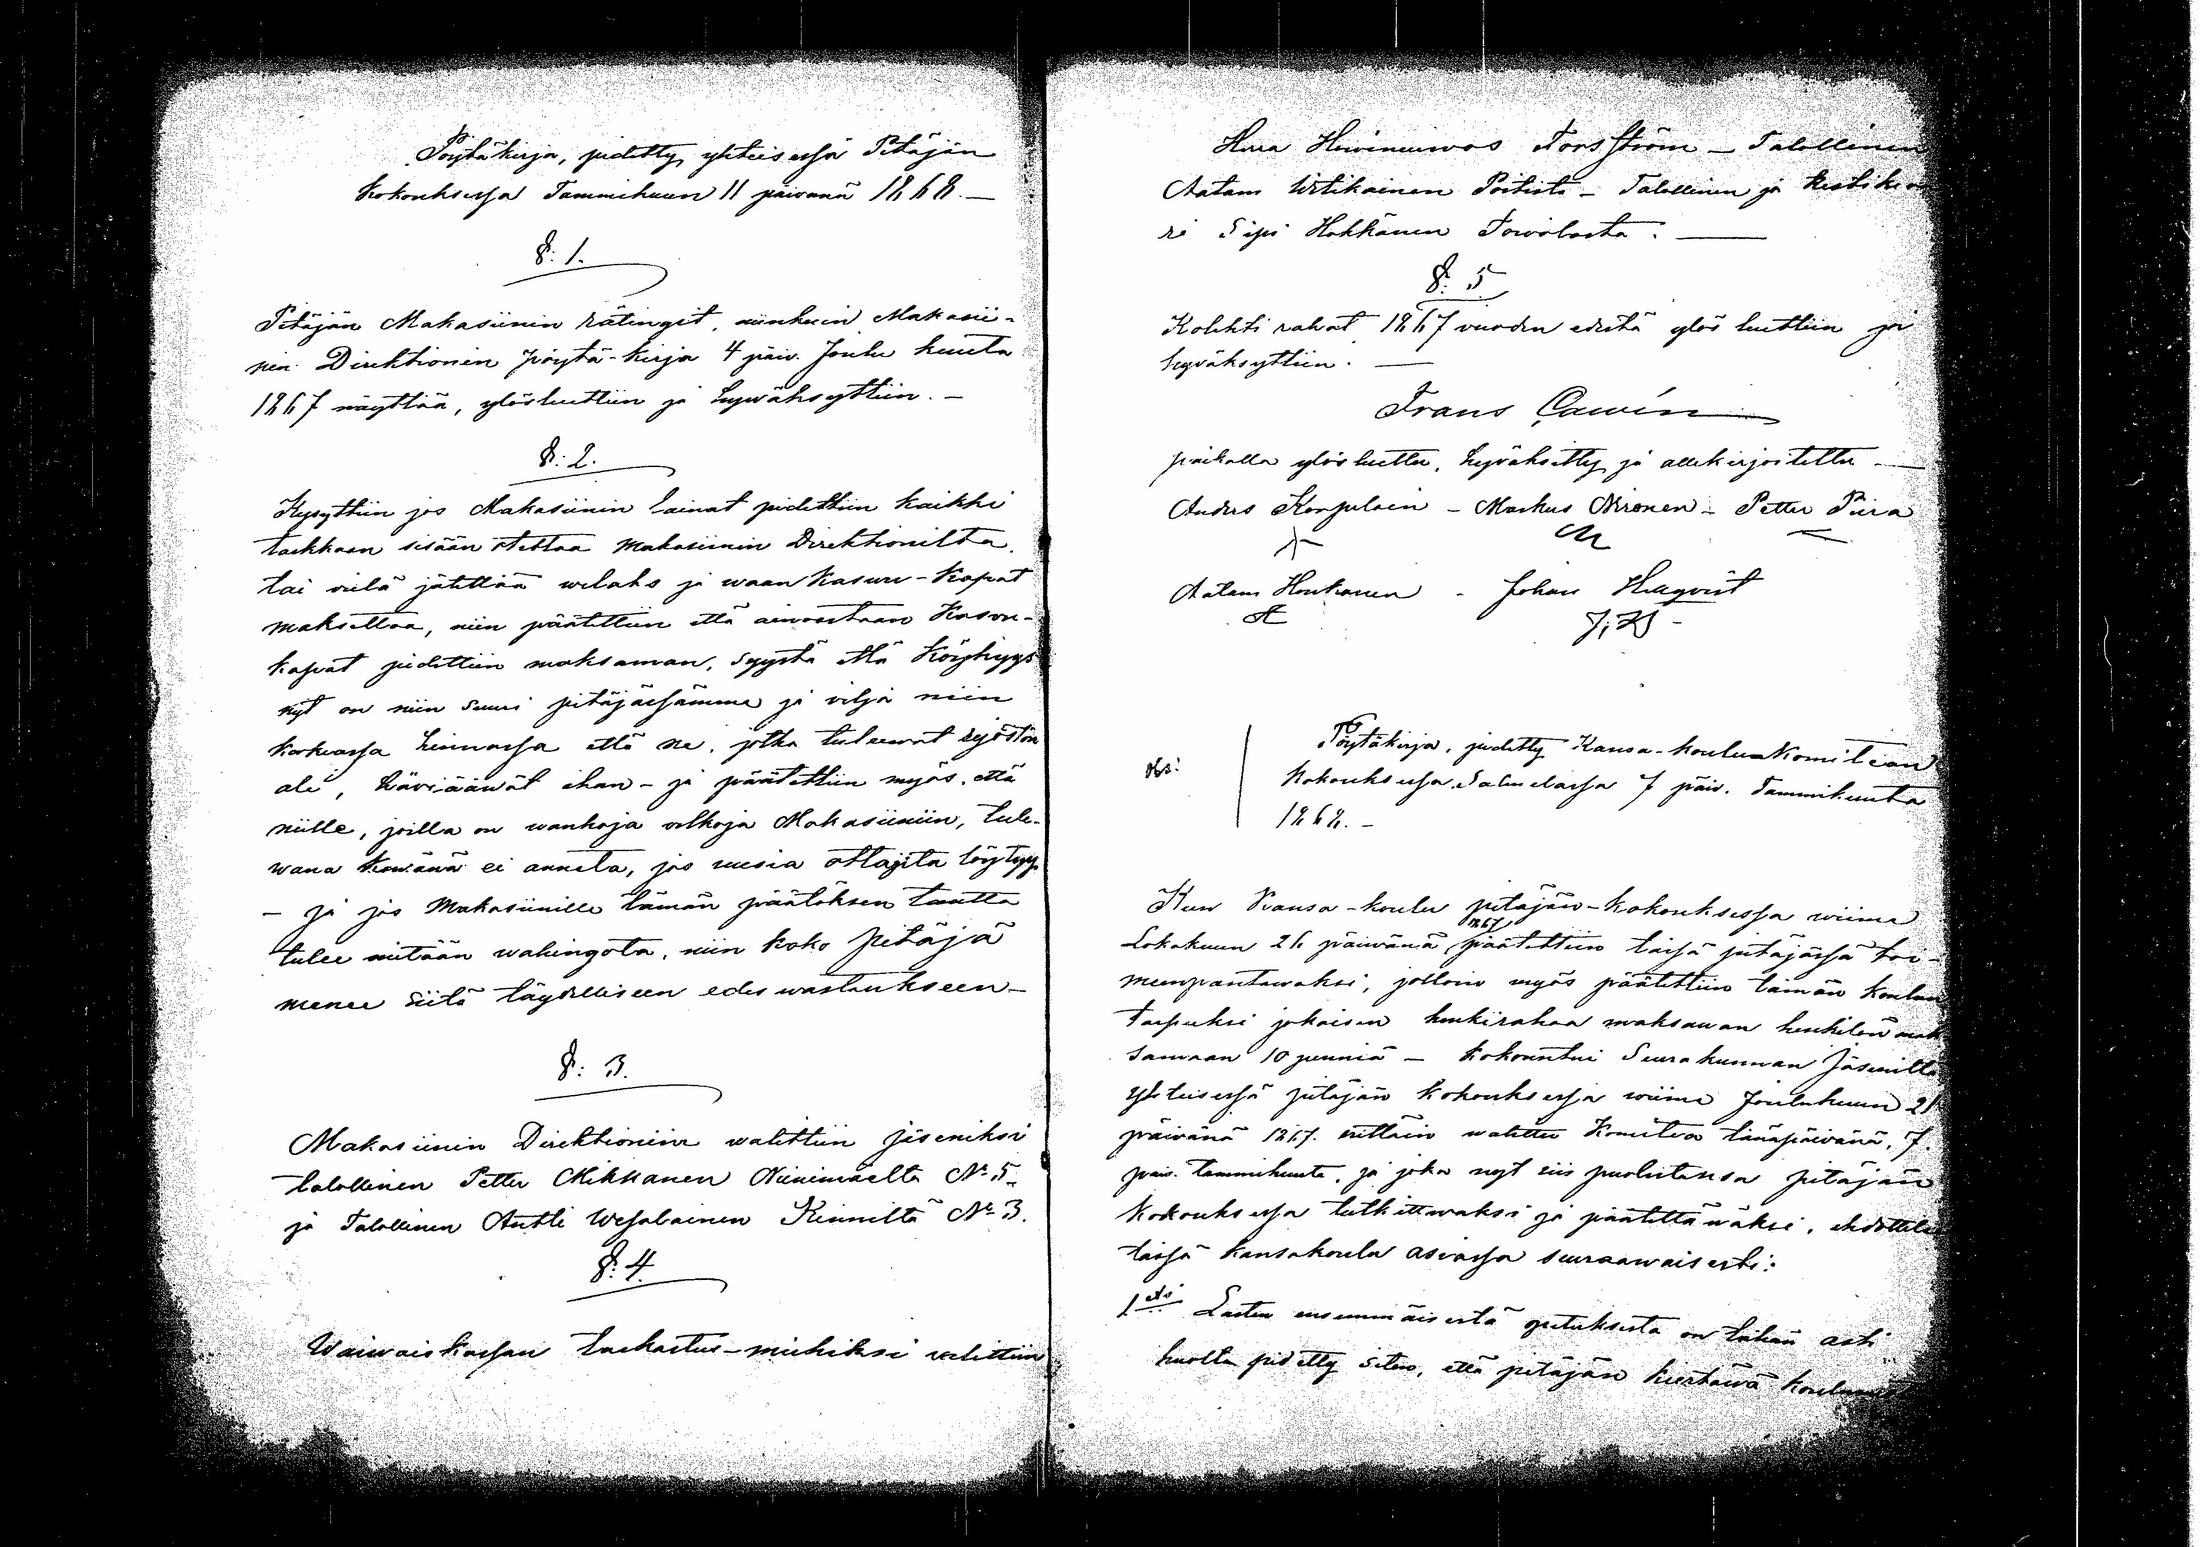 Pöytäkirja, pidetty yhteisessä Pitäjän
Kokouksessa Tammikuun 11 päivänä 1868. —
§: 1.
Pitäjän Makasiinin rätingit, niinkuin Makasii-
nin Direktionin pöytä-kirja 4 päiv. Joulu kuuta
1867 näyttää, ylösluettiin ja hywäksyttiin. —
§: 2.
Kysyttiin jos Makasiinin lainat pidettiin kaikki
tarkkaan sisään otettaa makasiinin Direktionilta,
tai vielä jätettää welaks ja waan Kaswu-Kapat
maksettaa, niin päätettiin että ainoastaan Kason-
kapat pidettiin maksaman, syystä että Köyhyys
nyt on niin suuri pitäjäessämme ja vilja niin
korkeassa hinnassa että ne, jotka tuleewat ryöstön
ale, häwiääwät ihan – ja päätettiin myös, että
niille, joilla on wanhoja velkoja Makasiiniin, tule-
wana kewänä ei anneta, jos uusia ottajita löytyy
– ja jos Makasiinille tämän päätöksen tautta
tulee mitään wahingota, niin koko pitäjä
menee siitä täydelliseen edeswastaukseen –
§: 3.
Makasiinin Direktioniin walittiin jäseniksi
talollinen Petter Mikkanen Niinimäeltä No 5.
ja Talollinen Antti Wesalainen Kinniltä No 3.
§: 4.
Waiwaiskassan tarkastus-miehiksi valittiin
Herra Howineuwos Forsström – Talollinen
Aatam Utikainen – Talollinen ja Kestikiwa
ri Sipi Hokkanen Toivolasta. —
§: 5
Kolehti rahat 1867 vuoden edestä ylös luettiin ja
hyväksyttiin. —
Frans
paikalla ylös luettu, hyväksitty ja allekirjoitettu —
Anders Korpelain – Markus Nironen – Petter Piira
Aatam Houtkanen – Johan Hagqvist
J; H –
Obs:
Pöytäkirja, pidetty Kansa-koulun Komitean
Kokouksessa Salmelassa 7 päiv. Tammikuuta
1868. –
Kuu Kansa-koulu pitäjän-kokouksessa wiime
Lokakuun 26 päiwänä 1867 päätettiin tässä pitäjässä toi-
meenpantawaksi, jolloin myös päätettiin tämän koulun
tarpeeksi jokaisen henkirahaa maksawan henkilön mak
sawaan 10 penniä – kokoontui Seurakunnan Jäsenilta
yhteisessä pitäjän kokouksessa wiime Joulukuun 21
päivänä 1867. erittäin walittu Komitea tänäpäivänä, 7.
päiv. tammikuuta, ja joka nyt siis puolestansa pitäjän
Kokouksessa tutkittawaksi ja päätettäwäksi, ehdottele
tässä kansakoulu asiassa seuraawaisesti:
1ksi Lasten ensimmäisestä opetuksesta on tähän asti
huolta pidetty siten, että pitäjän kiertäwä